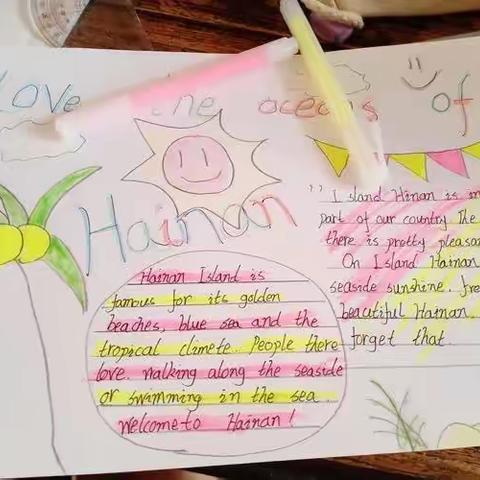 Love the oceans of
Hainan
Hainan Island is
famous for its golden
beaches, blue sea and the
tropical climete. People there
love. walking along the seaside
or swimming in the sea.
Welcome to Hainan!
" Island Hinan is
part of our country. The
there is pretty pleasan
On Island Hainan
seaside sunshine, fre
beautiful Hainan.
forget that.